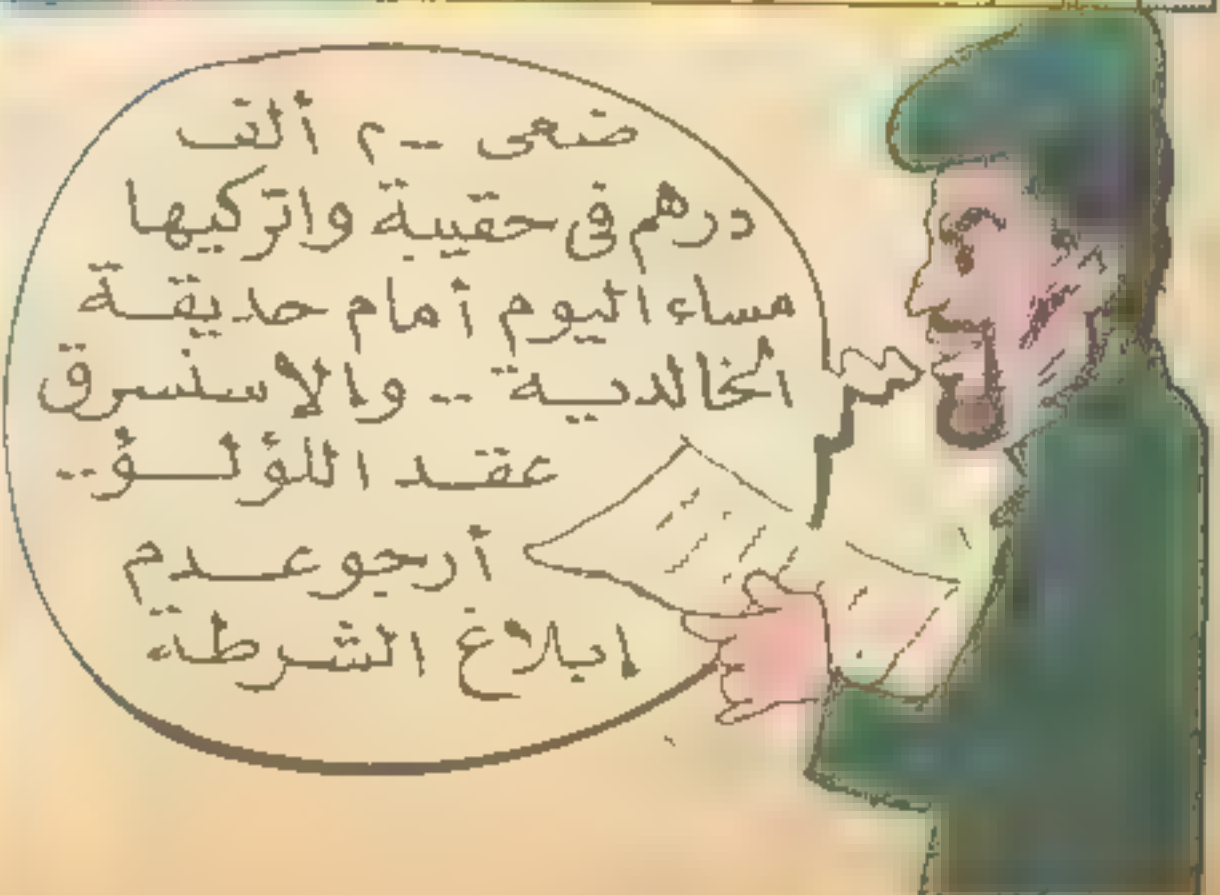 ضعى ٢٠٠ ألف
درهم فى حقيبة واتركيها
مساء اليوم أمام حديقة
الخالدية .. والا سنسرق
عقد اللؤلؤ..
أرجو عدم
ابلاغ الشرطة